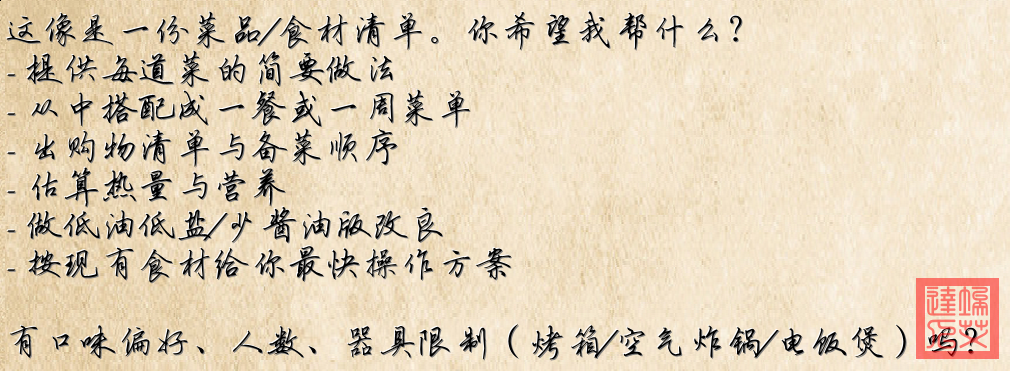 这像是一份菜品/食材清单。你希望我帮什么?
- 提供每道菜的简要做法
- 从中搭配成一餐或一周菜单
- 出购物清单与备菜顺序
- 估算热量与营养
- 做低油低盐/少酱油版改良
- 按现有食材给你最快操作方案
有口味偏好、人数、器具限制(烤箱/空气炸锅/电饭煲)吗?